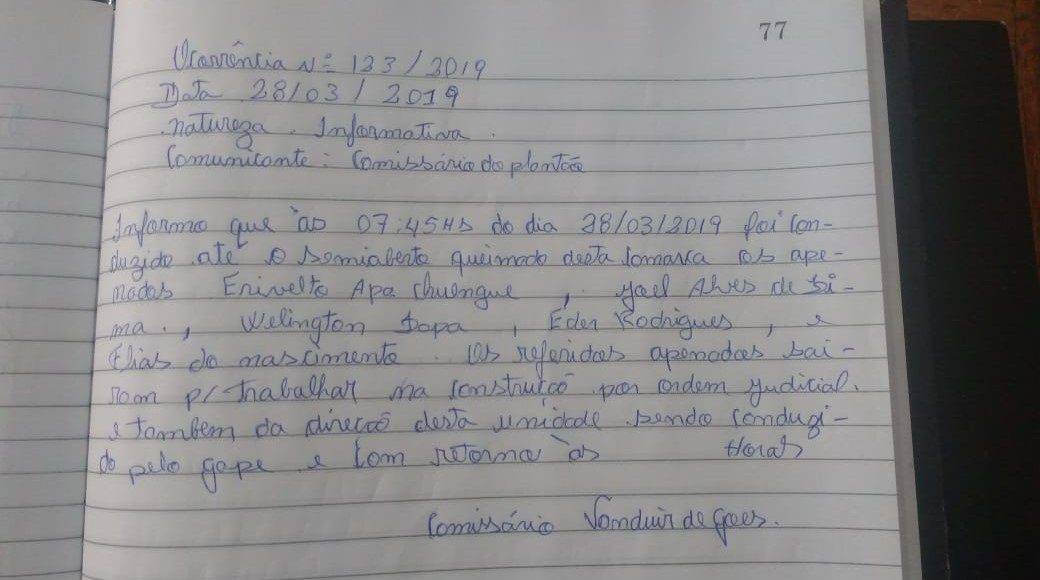 77
Ocorrência Nº 123/2019
Data 28/03/2019
natureza. Informativa.
Comunicante: Comissário do plantão
Informo que às 07:45Hs do dia 28/03/2019 foi con-
duzido até o Semiaberto queimado desta Comarca os ape-
nados Erivelto Apa Chuengue, Joel Alves de Li-
ma., Welington Sopa, Eder Rodrigues, e
Elias do nascimento. Os referidos apenados sai-
ram p/ trabalhar na Construçõ por ordem judicial.
e tambem da direçõ desta unidade sendo conduzi-
do pelo gape e com retorno às Horas
Comissário de Goes.